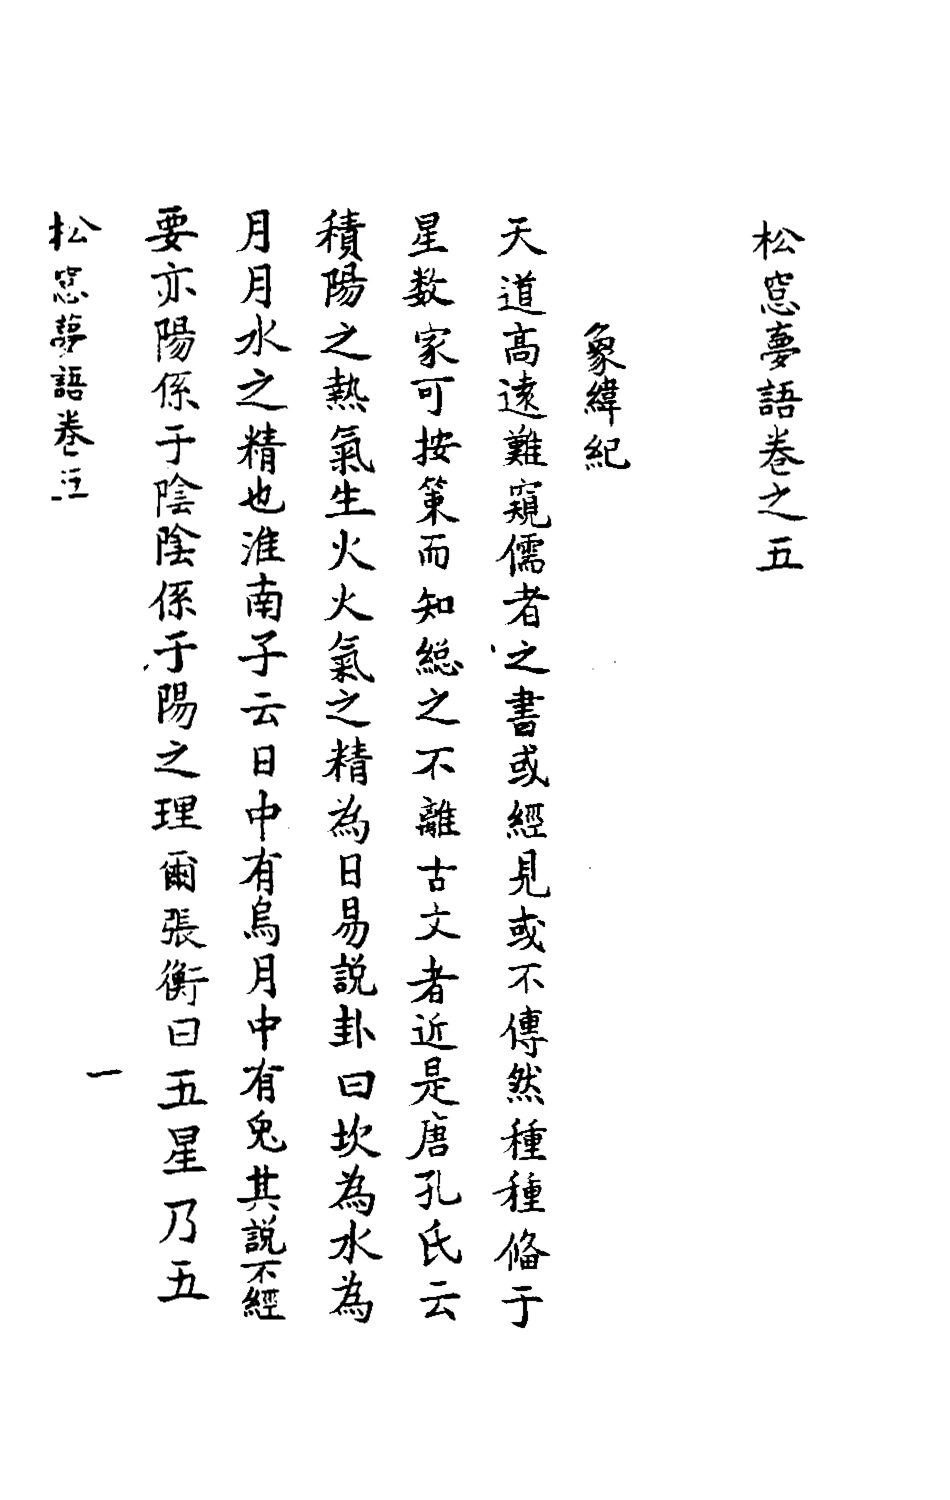 松窓夢語卷之五
象緯紀
天道高遠難窺儒者之書或經見或不傳然種種俻于
星数家可按策而知総之不離古文者近是唐孔氏云
積陽之熱氣生火火氣之精為日易説卦曰坎為水為
月月水之精也淮南子云日中有烏月中有兔其説不經
要亦陽係于陰陰係于陽之理爾張衡曰五星乃五
松窓夢語卷之五
一